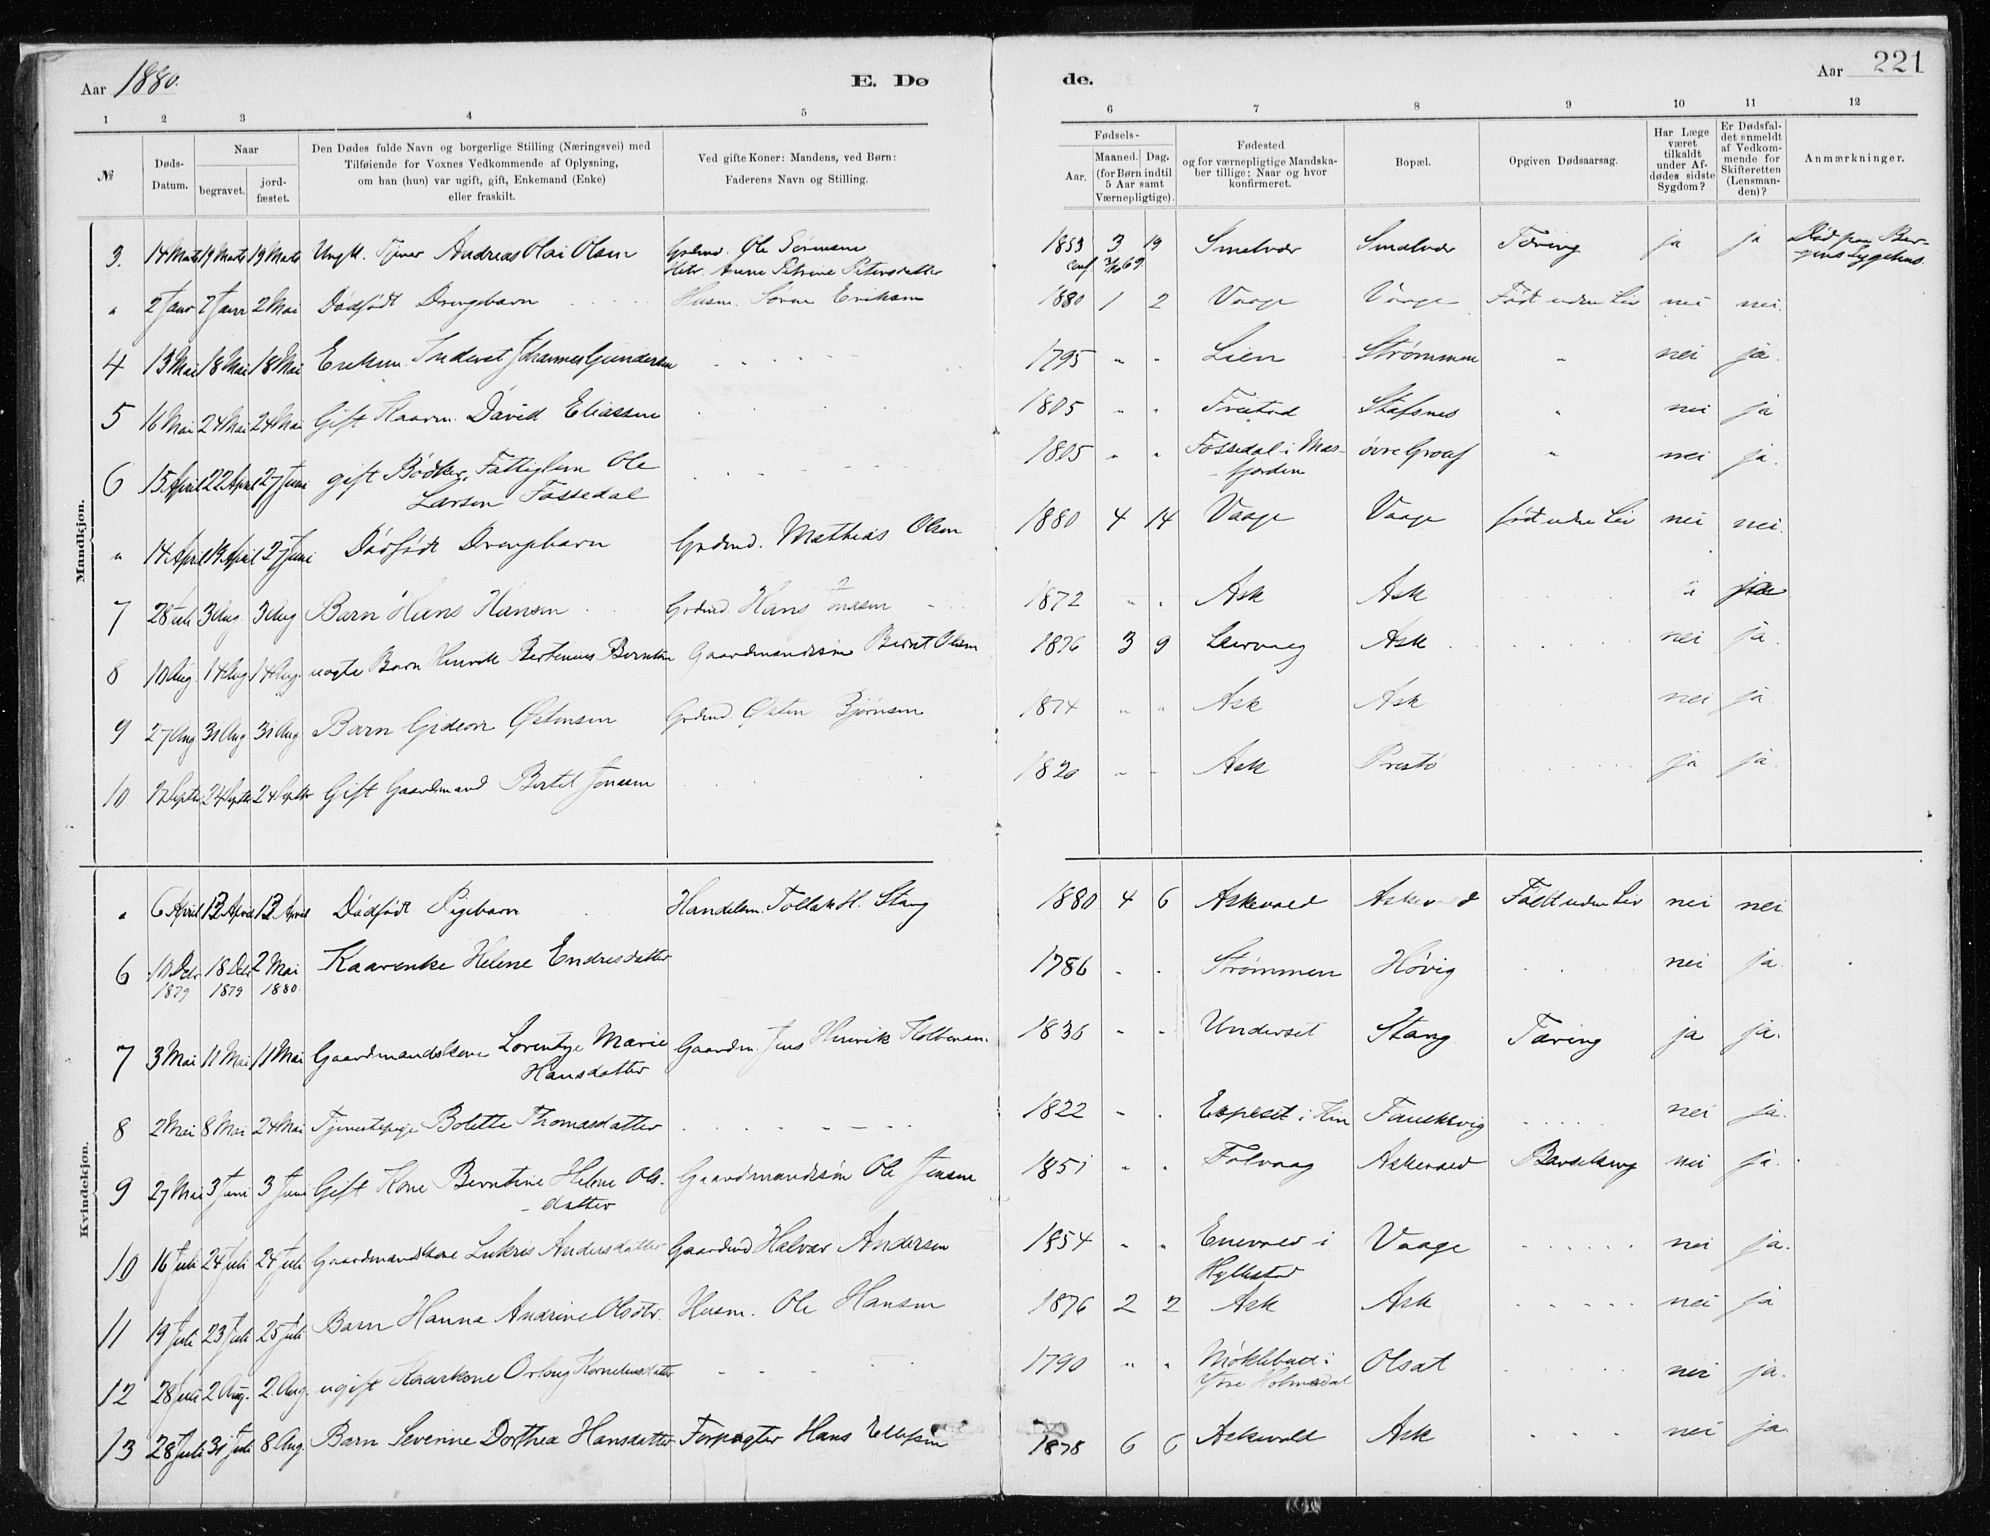 Aar 1880.
E. Dø
de.
Aar 221
1 2 3 4 5 6 7 8 9 10 11 12
№
Døds-Datum.
Naar
begravet.
jord-fæstet.
Den Dødes fulde Navn og borgerlige Stilling (Næringsvei) med
Tilføiende for Voxnes Vedkommende af Oplysning,
om han (hun) var ugift, gift, Enkemand (Enke)
eller fraskilt.
Ved gifte Koner: Mandens, ved Børn:
Faderens Navn og Stilling.
Fødsels-
Aar.
Maaned. Dag.
(for Børn indtil
5 Aar samt
Værnepligtige).
Fødested
og for værnepligtige Mandska-
ber tillige: Naar og hvor
konfirmeret.
Bopæl.
Opgiven Dødsaarsag.
Har Læge
været
tilkaldt
under Af-
dødes sidste
Sygdom?
Er Dødsfal-
det anmeldt
af Vedkom-
mende for
Skifteretten
(Lensman-
den)?
Anmærkninger.
Mandkjøn.
3. 14 Marts 19 Marts 19 Marts Ungk. Tjener Andreas Olai Olsen Ole Sørensen 1853 3 19 Smelvær Smelvær Tæring ja ja Død paa Ber-
Anne Petrine Petersdatter gens Sygehus.
" 2 Janr 7 Janr 2 Mai Dødfødt Drengebarn Husm. Eriksen 1880 1 2 Vaage Vaage Født uden Liv nei nei.
4 13 Mai 18 Mai 18 Mai Johannes Gundersen 1795 " " Lien Strømmen " nei ja.
5 16 Mai 24 Mai 24 Mai Gift Kaarm. David Eliassen 1805 " " Stafsnes " nei ja
6 15 April 22 April 27 Juni gift Bødker, Fattiglem Ole 1805 " " Fossedal i Mas- øvre " nei ja.
Larsen Fossedal fjorden
" 14 April 19 April 27 Juni Dødfødt Drengebarn Grdmd. Mathias Olsen 1880 4 14 Vaage Vaage født uden Liv nei nei.
7 28 Juli 3 Aug 3 Aug Barn Hans Hansen Grdmd. Hans Jonasen 1872 " " Ask Ask ja
8 10 Aug. 14 Aug 14 Aug. uægte Barn Henrik Bertinius Berntsen Gaardmandssøn Bernt Olsen 1876 3 9 Leirvaag Ask nei ja.
9 27 Aug 31 Aug 31 Aug Barn Gideon Østensen Grdmd Østen Bjørnsen 1874 " " Ask Ask nei ja
10 24 Septbr 24 Septbr Gift Gaardmand Bertel Jonasen 1820 " " Ask Prestø ja ja.
Kvindekjøn.
" 6 April 12 April 12 April Dødfødt Pigebarn Handelsm. Tollak H. Stang 1880 4 6 Askevold Askevold Født uden Liv nei nei
6 10 Dcbr 18 Dcbr 2 Mai Kaarenke Helene Endresdatter 1786 " " Strømmen Høvig nei ja.
1879 1879 1880.
7 3 Mai 11 Mai 11 Mai Gaardmandskone Lorentze Marie Gaardm. Jens Henrik 1836 " " Underset Stang Tæring ja ja.
Hansdatter
8 2 Mai 8 Mai 24 Mai Tjenestepige Bolette Thomasdatter 1822 " " Espeset i nei ja.
9 27 Mai 3 Juni 3 Juni Gift Kone Berntine Helene Ols- Gaardmandssøn Ole Jensen 1851 " " Folvaag Askevold Barselseng nei ja.
datter
10 16 Juli 24 Juli 24 Juli Gaardmandskone Lukris Andersdatter Gaardmd Halvar Andersen 1854 " " Enevold i Vaage nei ja.
Hyllestad
11 19 Juli 23 Juli 25 Juli Barn Hanna Andrine Olsdtr. Husm. Ole Hansen 1876 2 2 Ask Ask nei ja
12 28 Juli 2 Aug. 2. Aug. ugift Kaarkone Korneliusdatter 1790 " " Møklebust i Olsæt nei ja.
Ytre Holmedal
13 28 Juli 31 Juli 8 Aug. Barn Severine Dorthea Hansdatter Forpagter Hans Ellefsen 1878 6 6 Askevold Ask nei ja.